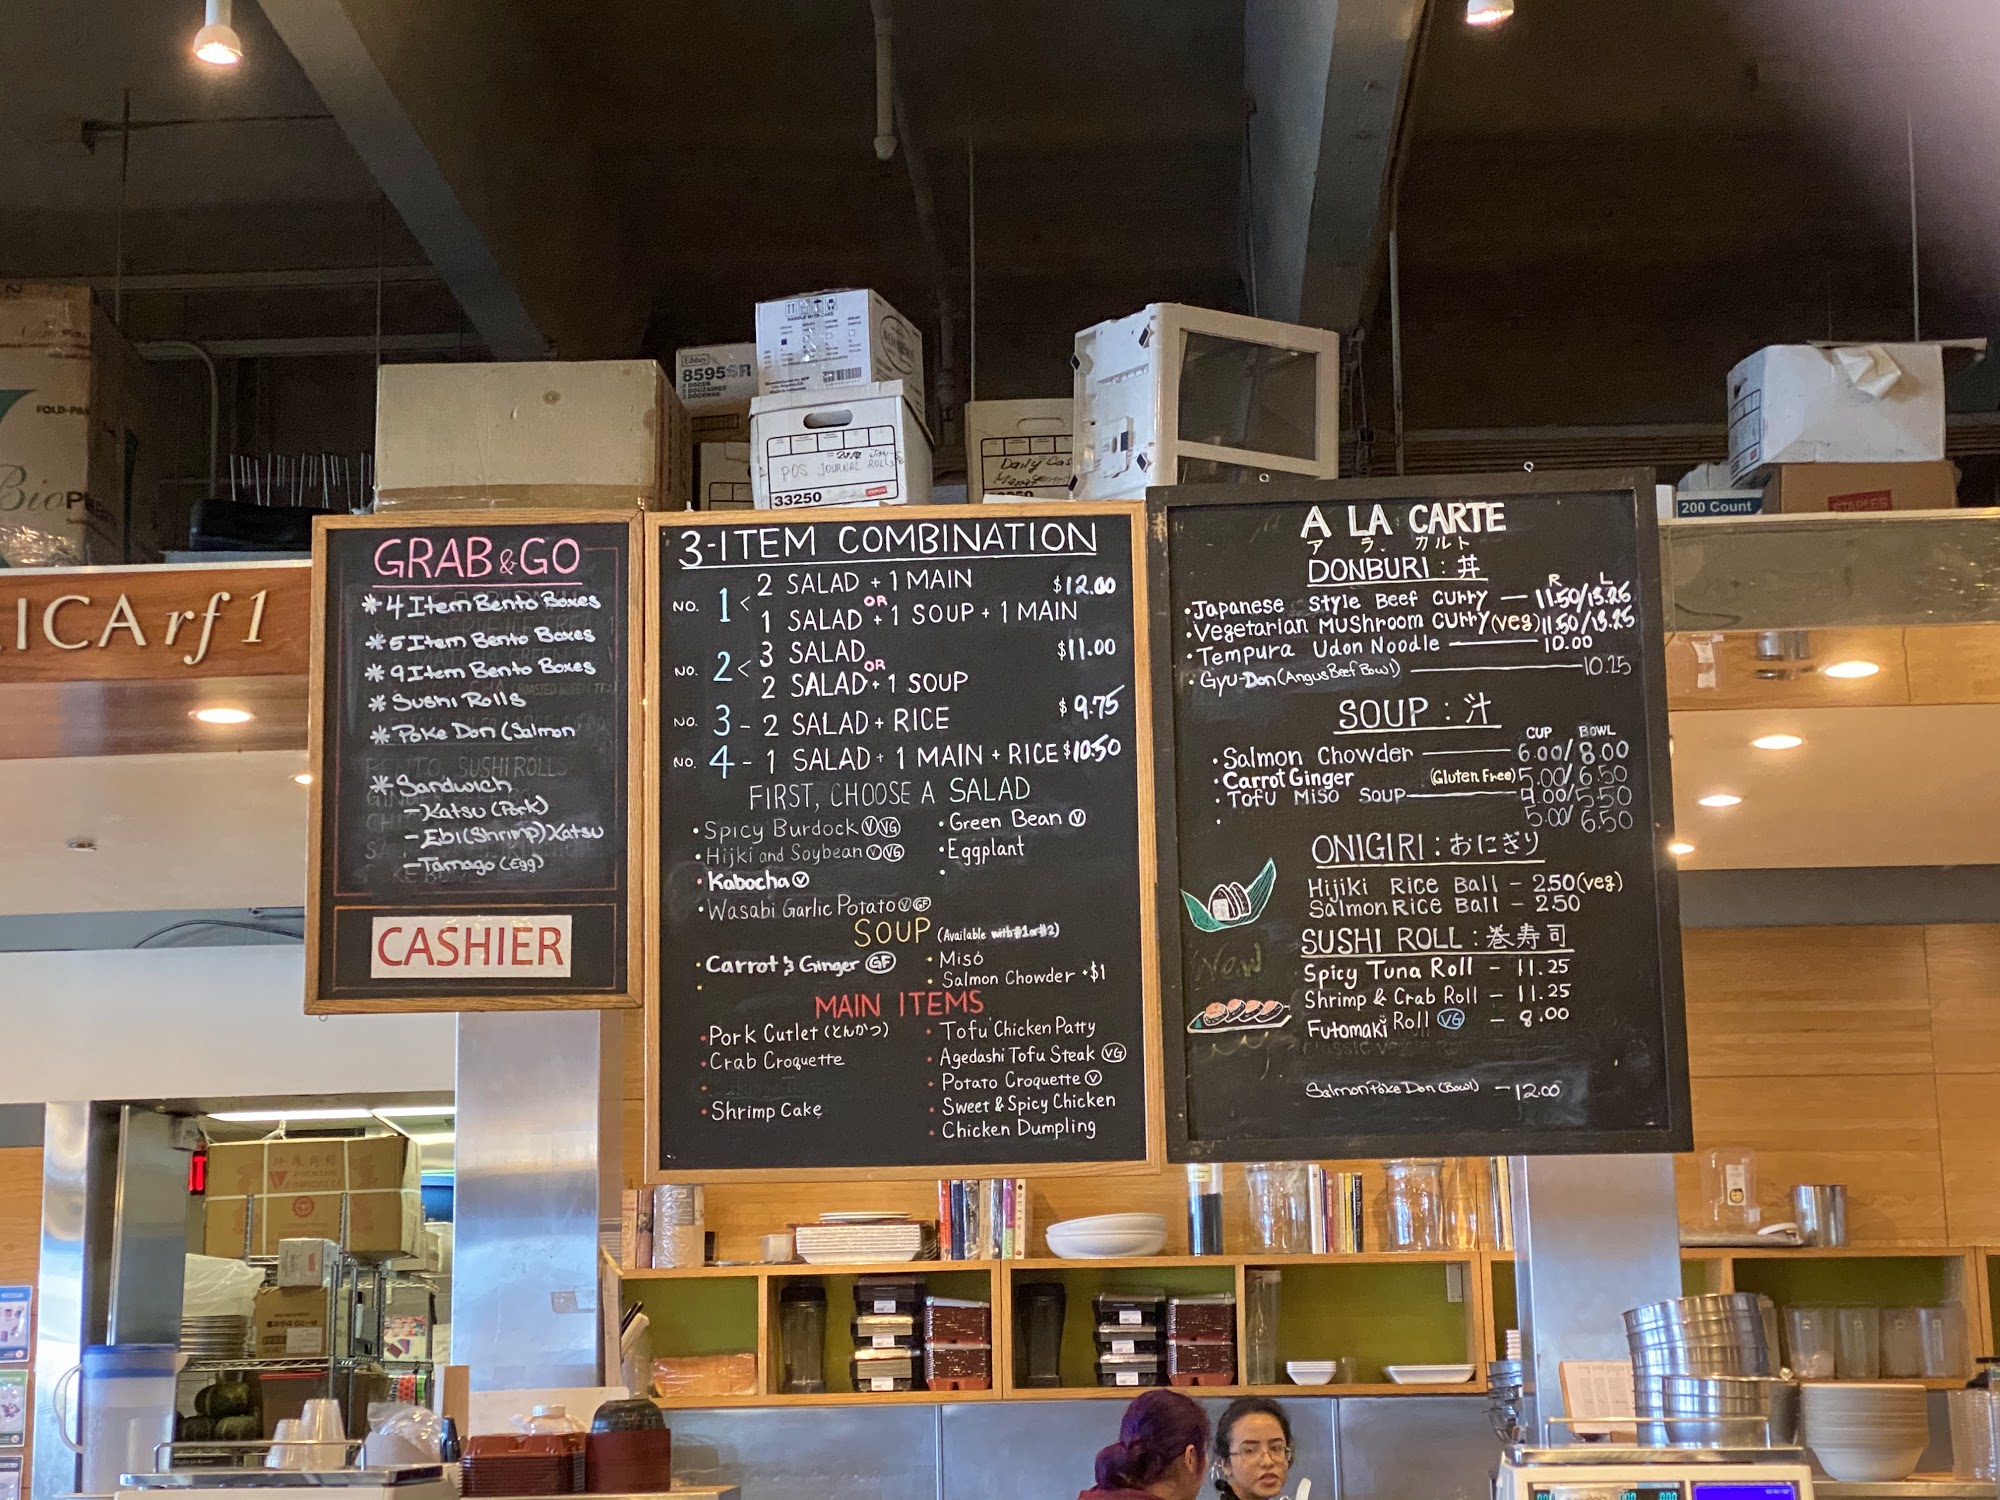 Libbey
8595SR
2 DOZEN
2 DOUZAINES
2 DOCENAS
HANDLE WITH CARE
POS JOURNAL ROLLS
33250
Daily Cas
200 Count
STAPLES
FOLD-PAK
Bio
ICA rf 1
GRAB & GO
* 4 Item Bento Boxes
* 5 Item Bento Boxes
* 9 Item Bento Boxes
* Sushi Rolls
* Poke Don (Salmon
* Sandwich
- Katsu (Pork)
- Ebi (Shrimp) Katsu
- Tamago (Egg)
CASHIER
3-ITEM COMBINATION
NO. 1 < 2 SALAD + 1 MAIN $12.00
OR
1 SALAD + 1 SOUP + 1 MAIN
NO. 2 < 3 SALAD $11.00
OR
2 SALAD + 1 SOUP
NO. 3 - 2 SALAD + RICE $9.75
NO. 4 - 1 SALAD + 1 MAIN + RICE $10.50
FIRST, CHOOSE A SALAD
• Spicy Burdock V VG
• Hijki and Soybean V VG
• Kabocha V
• Wasabi Garlic Potato V GF
• Green Bean V
• Eggplant
SOUP (Available with #1 or #2)
• Carrot & Ginger GF
• Miso
• Salmon Chowder +$1
MAIN ITEMS
• Pork Cutlet (とんかつ)
• Crab Croquette
• Shrimp Cake
• Tofu Chicken Patty
• Agedashi Tofu Steak VG
• Potato Croquette V
• Sweet & Spicy Chicken
• Chicken Dumpling
A LA CARTE
ア ラ カルト
DONBURI : 丼
R L
• Japanese Style Beef Curry — 11.50/13.25
• Vegetarian Mushroom Curry (veg) 11.50/13.25
• Tempura Udon Noodle — 10.00
• Gyu-Don (Angus Beef Bowl) — 10.25
SOUP : 汁
CUP BOWL
• Salmon Chowder — 6.00/8.00
• Carrot Ginger (Gluten Free) 5.00/6.50
• Tofu Miso Soup — 4.00/5.50
• 5.00/6.50
ONIGIRI : おにぎり
Hijiki Rice Ball - 2.50 (veg)
Salmon Rice Ball - 2.50
SUSHI ROLL : 巻寿司
New
Spicy Tuna Roll - 11.25
Shrimp & Crab Roll - 11.25
Futomaki Roll VG - 8.00
Salmon Poke Don (Bowl) - 12.00